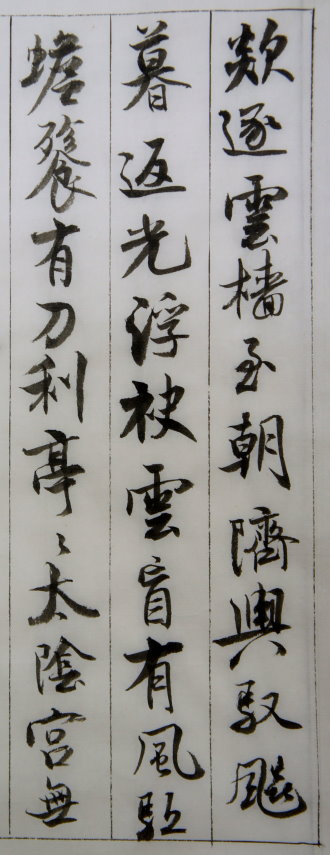 欻逐雲檣至朝隮輿馭飈
暮返光浮袂雲盲有風駈
蟾餮有刀利亭〻太陰宮無